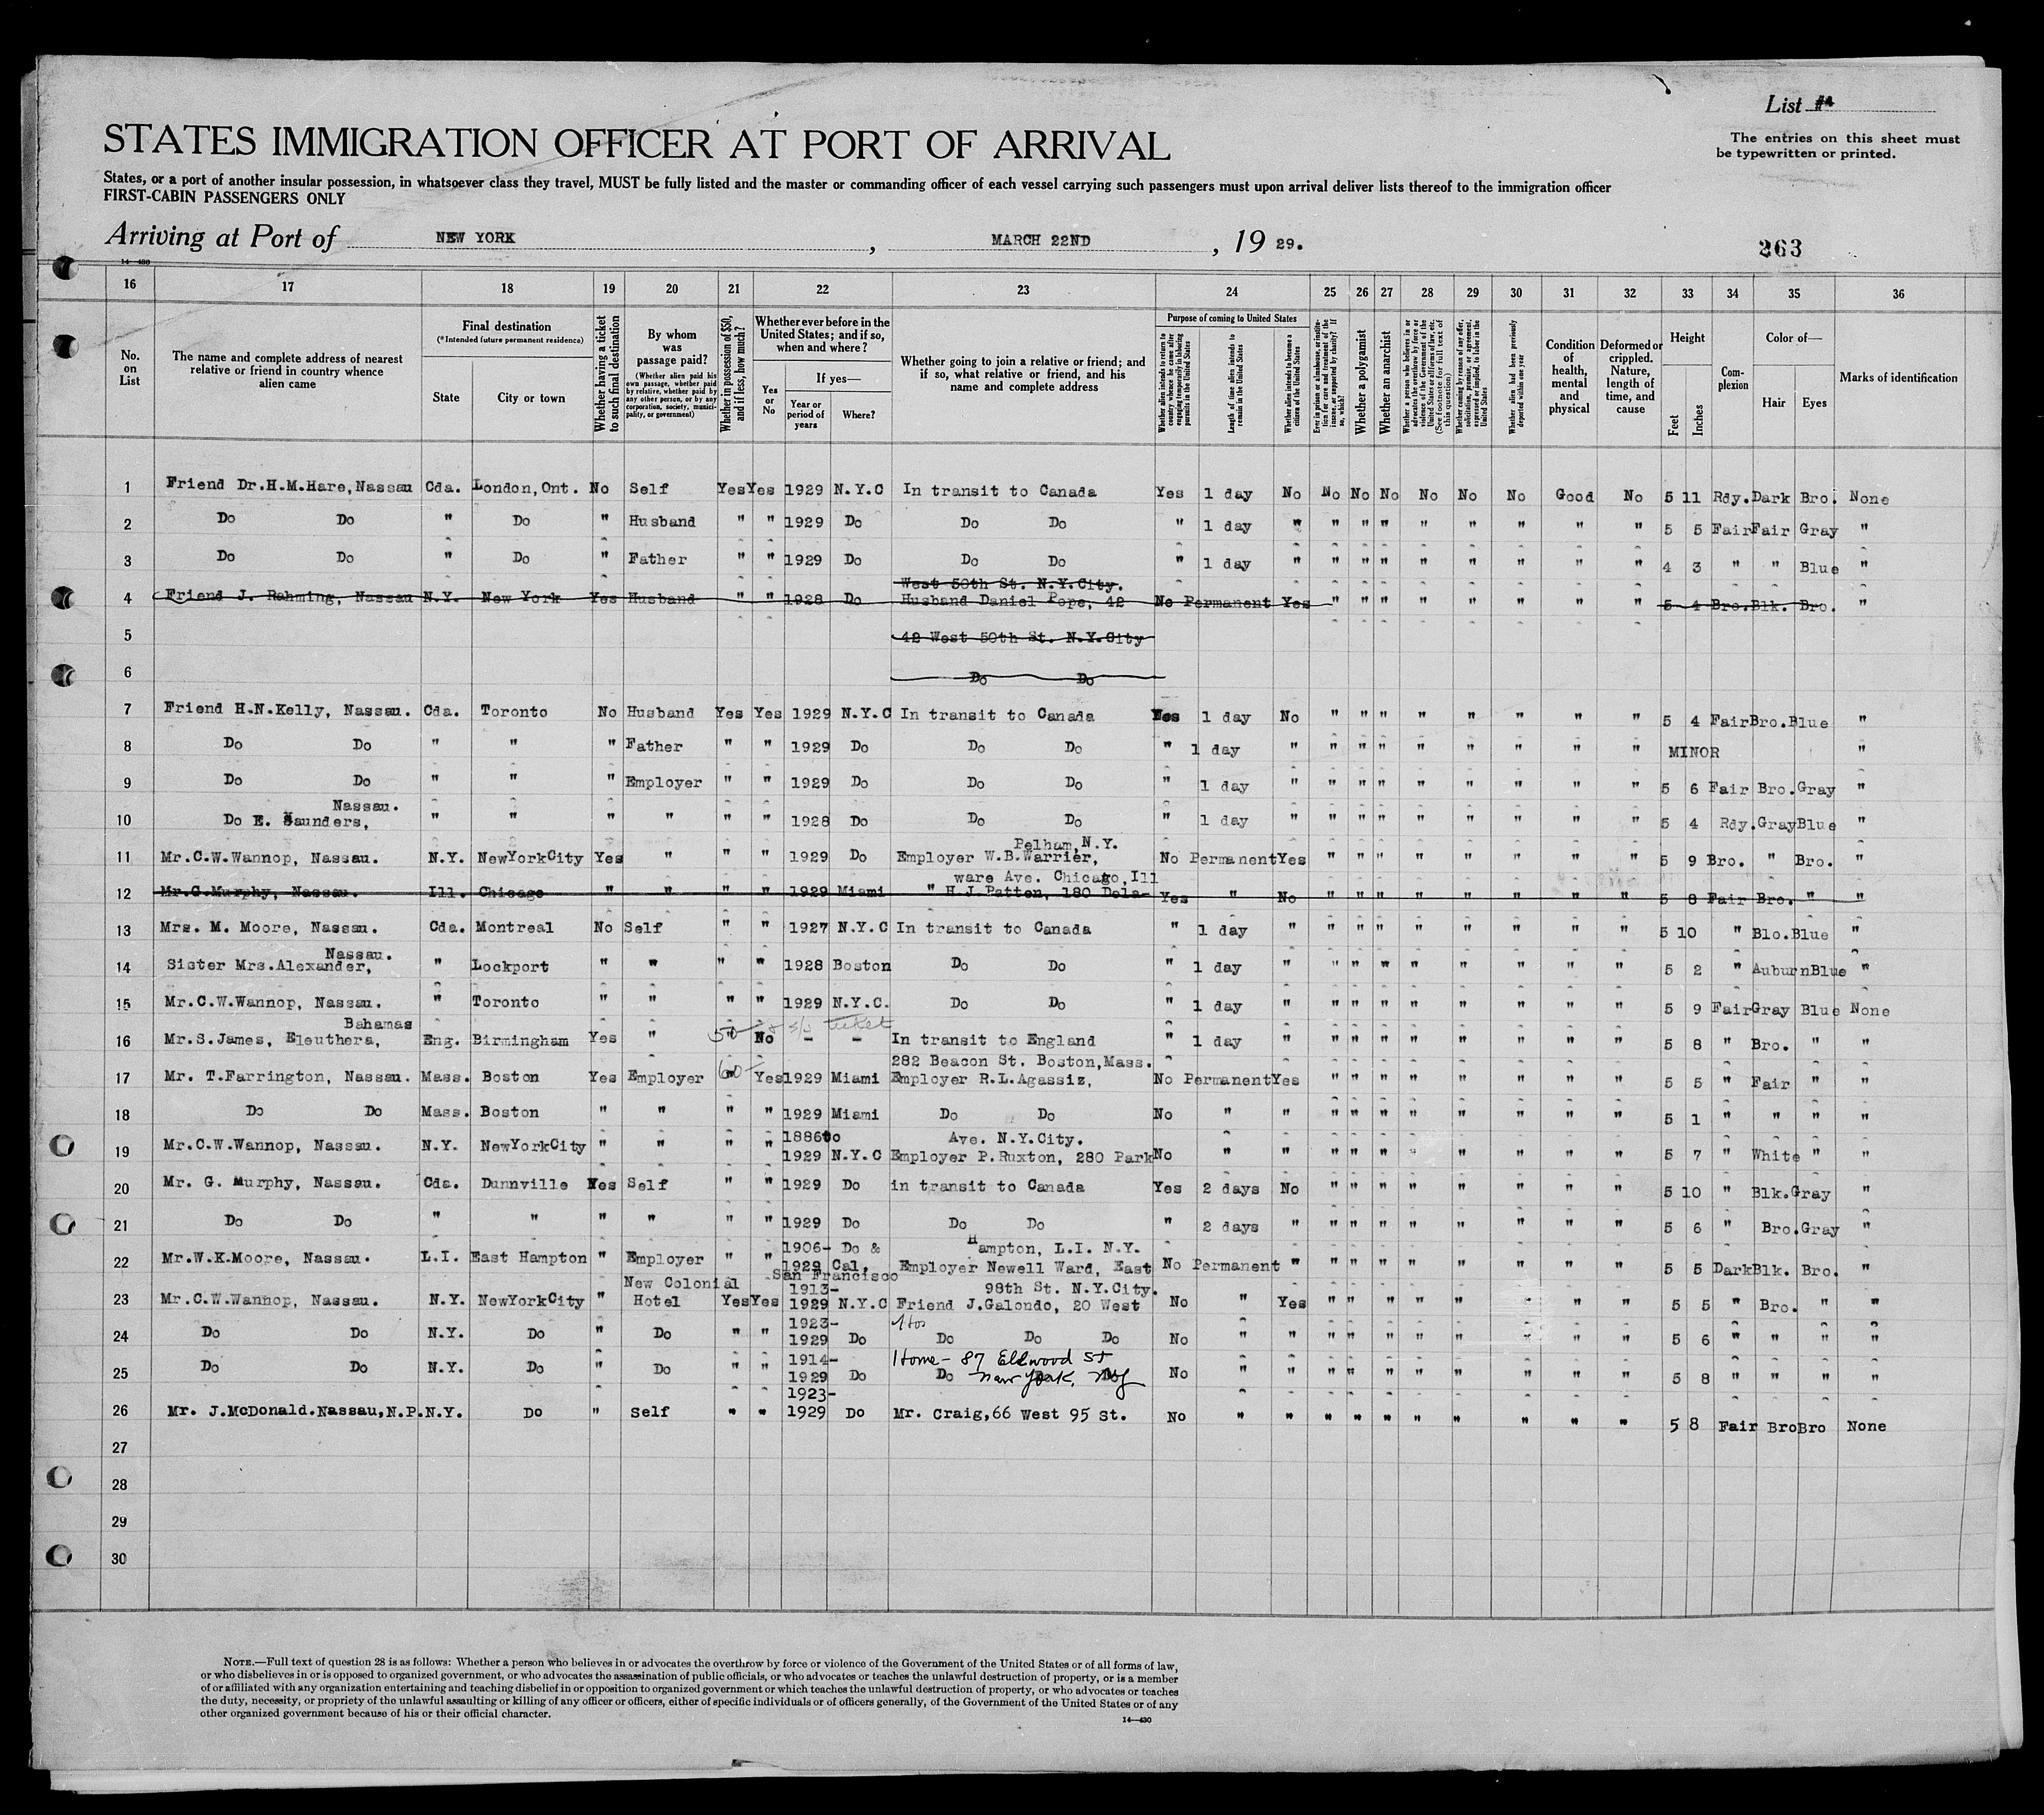 List #4
STATES IMMIGRATION OFFICER AT PORT OF ARRIVAL
The entries on this sheet must
be typewritten or printed.
States, or a port of another insular possession, in whatsoever class they travel, MUST be fully listed and the master or commanding officer of each vessel carrying such passengers must upon arrival deliver lists thereof to the immigration officer
FIRST-CABIN PASSENGERS ONLY
Arriving at Port of NEW YORK, MARCH 22ND, 19 29.
263
14—430
16 17 18 19 20 21 22 23 24 25 26 27 28 29 30 31 32 33 34 35 36
No. on List
The name and complete address of nearest relative or friend in country whence alien came
Final destination
(*Intended future permanent residence)
State
City or town
Whether having a ticket to such final destination
By whom was passage paid?
(Whether alien paid his own passage, whether paid by relative, whether paid by any other person, or by any corporation, society, municipality, or government)
Whether in possession of $50, and if less, how much?
Whether ever before in the United States; and if so, when and where?
Yes or No
If yes—
Year or period of years
Where?
Whether going to join a relative or friend; and if so, what relative or friend, and his name and complete address
Purpose of coming to United States
Whether alien intends to return to country whence he came after engaging temporarily in laboring pursuits in the United States
Length of time alien intends to remain in the United States
Whether alien intends to become a citizen of the United States
Ever in prison or almshouse, or institution for care and treatment of the insane, or supported by charity? If so, which?
Whether a polygamist
Whether an anarchist
Whether a person who believes in or advocates the overthrow by force or violence of the Government of the United States or all forms of law, etc. (See footnote for full text of this question)
Whether coming by reason of any offer, solicitation, promise, or agreement, expressed or implied, to labor in the United States
Whether alien had been previously deported within one year
Condition of health, mental and physical
Deformed or crippled. Nature, length of time, and cause
Height
Feet
Inches
Complexion
Color of—
Hair
Eyes
Marks of identification
1 Friend Dr.H.M.Hare,Nassau Cda. London,Ont. No Self Yes Yes 1929 N.Y.C In transit to Canada Yes 1 day No No No No No No No Good No 5 11 Rdy. Dark Bro. None
2 Do Do " Do " Husband " " 1929 Do Do Do " 1 day " " " " " " " " " 5 5 Fair Fair Gray "
3 Do Do " Do " Father " " 1929 Do Do Do " 1 day " " " " " " " " " 4 3 " " Blue "
West 50th St. N.Y.City.
4 Friend J. Rahming, Nassau N.Y. New York Yes Husband " " 1928 Do Husband Daniel Pope, 42 No Permanent Yes " " " " " " " " 5 4 Bro. Blk. Bro. "
5 42 West 50th St. N.Y.City
6 Do Do
7 Friend H.N.Kelly, Nassau. Cda. Toronto No Husband Yes Yes 1929 N.Y.C In transit to Canada Yes 1 day No " " " " " " " " 5 4 Fair Bro. Blue "
8 Do Do " " " Father " " 1929 Do Do Do " 1 day " " " " " " " " " MINOR "
9 Do Do " " " Employer " " 1929 Do Do Do " 1 day " " " " " " " " " 5 6 Fair Bro. Gray "
Nassau.
10 Do E. Saunders, " " " " " " 1928 Do Do Do " 1 day " " " " " " " " " 5 4 Rdy. Gray Blue "
Pelham,N.Y.
11 Mr.C.W.Wannop, Nassau. N.Y. NewYorkCity Yes " " " 1929 Do Employer W.B.Warrier, No Permanent Yes " " " " " " " " 5 9 Bro. " Bro. "
ware Ave. Chicago,Ill
12 Mr.G.Murphy, Nassau. Ill. Chicago " " " " 1929 Miami " H.J.Patten, 180 Dela- Yes " No " " " " " " " " 5 8 Fair Bro. " "
13 Mrs. M. Moore, Nassau. Cda. Montreal No Self " " 1927 N.Y.C In transit to Canada " 1 day " " " " " " " " " 5 10 " Blo. Blue "
Nassau.
14 Sister Mrs.Alexander, " Lockport " " " " 1928 Boston Do Do " 1 day " " " " " " " " " 5 2 " Auburn Blue "
15 Mr.C.W.Wannop, Nassau. " Toronto " " " " 1929 N.Y.C. Do Do " 1 day " " " " " " " " " 5 9 Fair Gray Blue None
Bahamas ticket
16 Mr.S.James, Eleuthera, Eng. Birmingham Yes " 50 " No - - In transit to England " 1 day " " " " " " " " " 5 8 " Bro. " "
282 Beacon St. Boston,Mass.
17 Mr. T.Farrington, Nassau. Mass. Boston Yes Employer 60 " Yes 1929 Miami Employer R.L.Agassiz, No Permanent Yes " " " " " " " " 5 5 " Fair " "
18 Do Do Mass. Boston " " " " 1929 Miami Do Do No " " " " " " " " " " 5 1 " " " "
1886 to Ave. N.Y.City.
19 Mr.C.W.Wannop, Nassau. N.Y. NewYorkCity " " " " 1929 N.Y.C Employer P.Ruxton, 280 Park No " " " " " " " " " " 5 7 " White " "
20 Mr. G. Murphy, Nassau. Cda. Dunnville Yes Self " " 1929 Do in transit to Canada Yes 2 days No " " " " " " " " 5 10 " Blk. Gray "
21 Do Do " " " " " " 1929 Do Do Do " 2 days " " " " " " " " " 5 6 " Bro. Gray "
1906- Do & Hampton, L.I. N.Y.
22 Mr.W.K.Moore, Nassau. L.I. East Hampton " Employer " " 1929 Cal. Employer Newell Ward, East No Permanent " " " " " " " " " 5 5 Dark Blk. Bro. "
New Colonial San Francisco
1913- 98th St. N.Y.City.
23 Mr.C.W.Wannop, Nassau. N.Y. NewYorkCity " Hotel Yes Yes 1929 N.Y.C Friend J.Galondo, 20 West No " Yes " " " " " " " " 5 5 " Bro. " "
1923-
24 Do Do N.Y. Do " Do " " 1929 Do Do Do Do No " " " " " " " " " " 5 6 " " " "
1914- Home - 87 Ellwood St
25 Do Do N.Y. Do " Do " " 1929 Do Do New York, Do No " " " " " " " " " " 5 8 " " " "
1923-
26 Mr. J.McDonald.Nassau,N.P. N.Y. Do " Self " " 1929 Do Mr. Craig,66 West 95 St. No " " " " " " " " " " 5 8 Fair Bro Bro None
27
28
29
30
NOTE.—Full text of question 28 is as follows: Whether a person who believes in or advocates the overthrow by force or violence of the Government of the United States or of all forms of law,
or who disbelieves in or is opposed to organized government, or who advocates the assassination of public officials, or who advocates or teaches the unlawful destruction of property, or is a member
of or affiliated with any organization entertaining and teaching disbelief in or opposition to organized government or which teaches the unlawful destruction of property, or who advocates or teaches
the duty, necessity, or propriety of the unlawful assaulting or killing of any officer or officers, either of specific individuals or of officers generally, of the Government of the United States or of any
other organized government because of his or their official character.
14—430